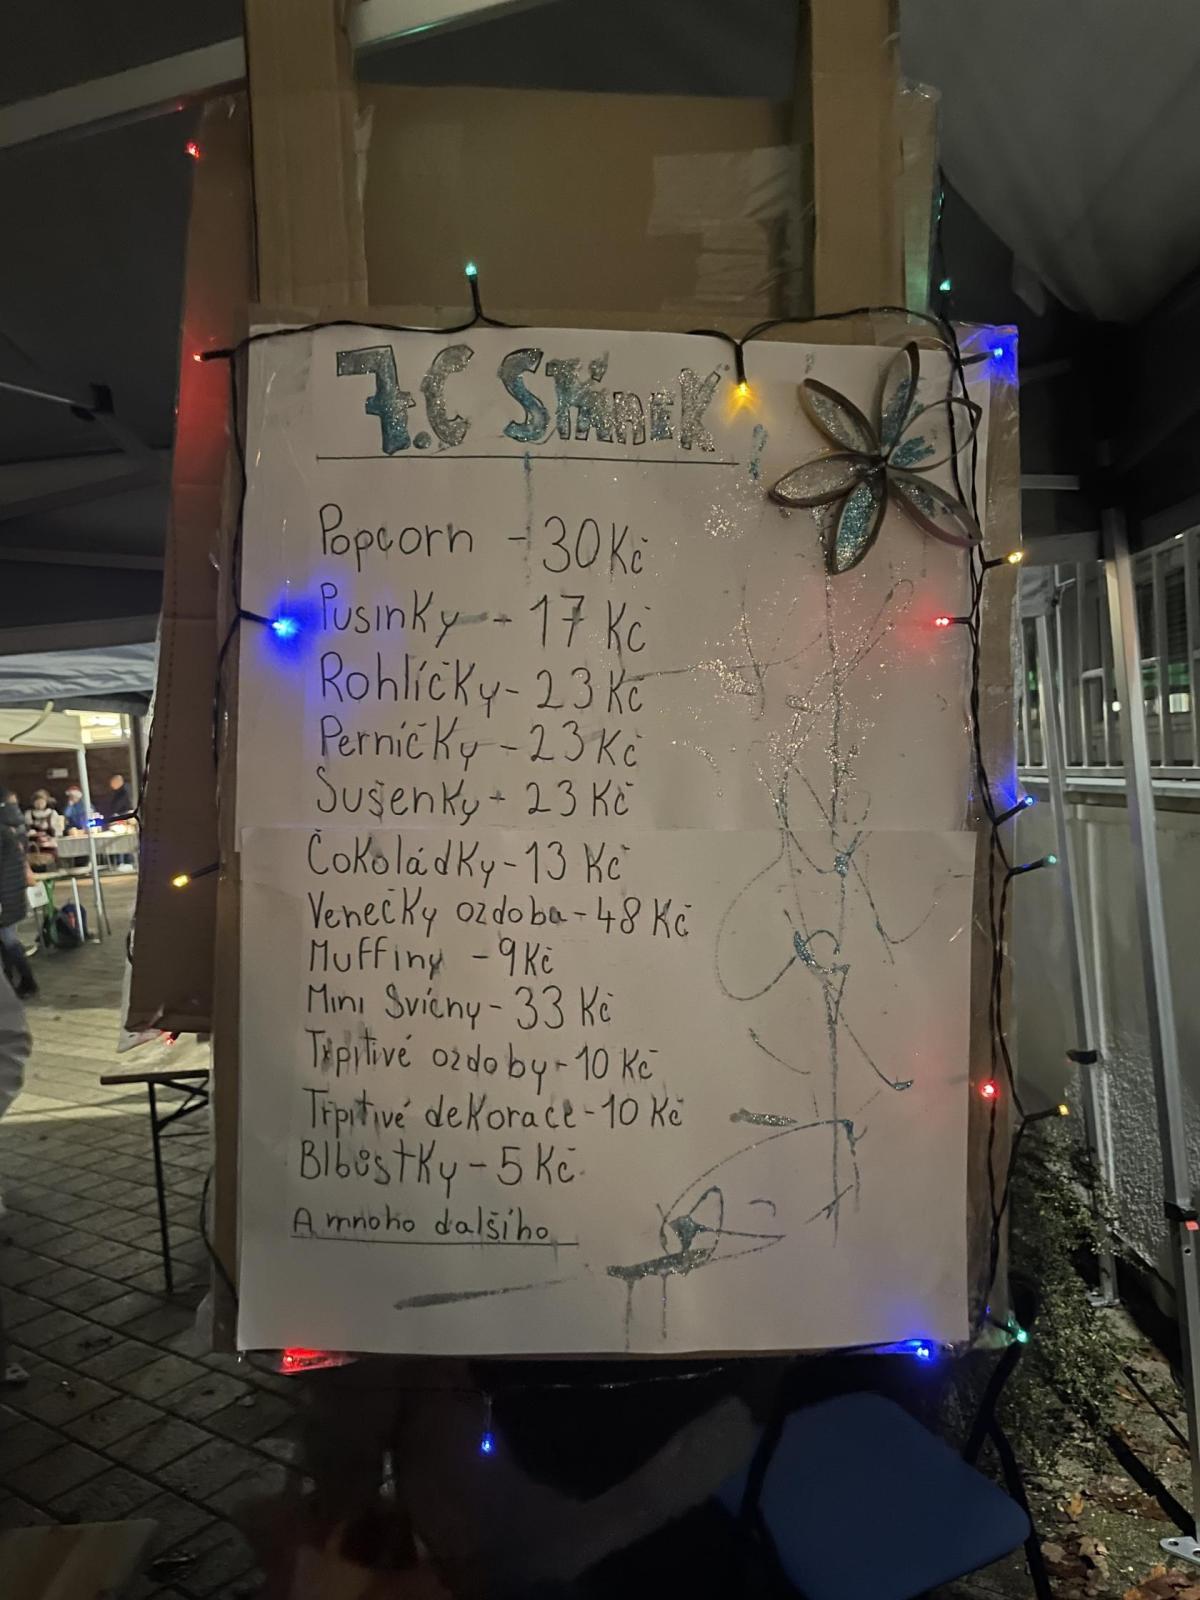 7.C Stánek
Popcorn - 30 Kč
Pusinky - 17 Kč
Rohlíčky - 23 Kč
Perníčky - 23 Kč
Sušenky - 23 Kč
Čokoládky - 13 Kč
Venečky ozdoba - 48 Kč
Muffiny - 9 Kč
Mini Svícny - 33 Kč
Třpitivé ozdoby - 10 Kč
Třpitivé dekorace - 10 Kč
Blbůstky - 5 Kč
A mnoho dalšího